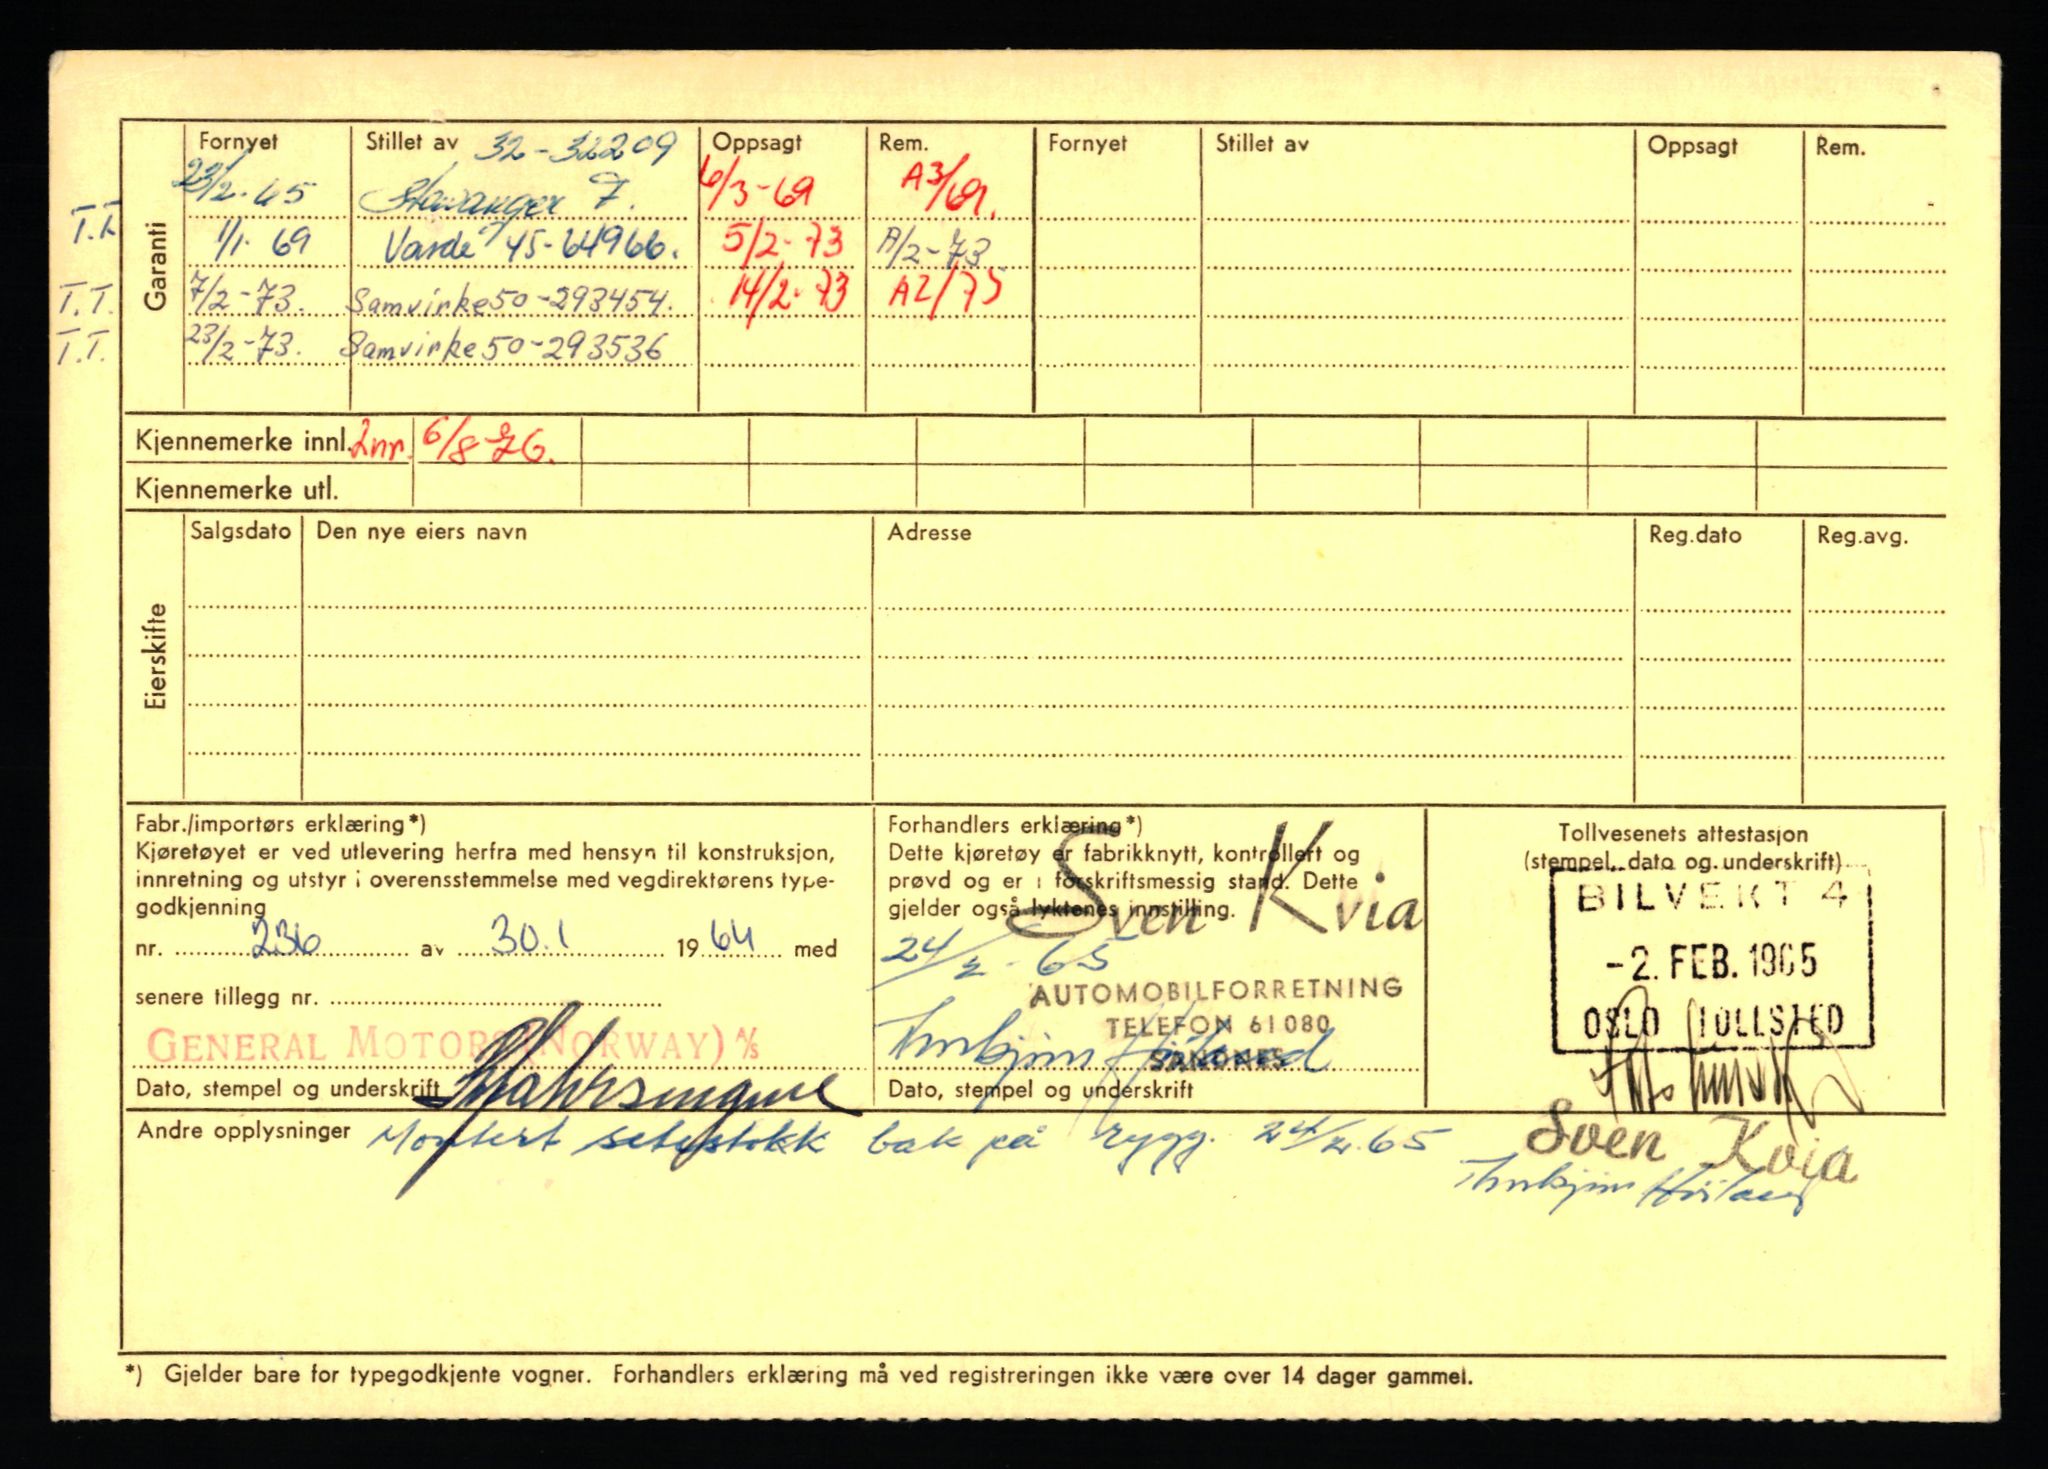 Garanti
Fornyet Stillet av 32-32209 Oppsagt Rem. Fornyet Stillet av Oppsagt Rem.
23/2-65 Stavanger F. 6/3-69 A3/69.
1/1-69 Varde 45-64966. 5/2-73 A/2-73
T.T. 7/2-73. Samvirke 50-293454. 14/2-73 A2/75
T.T. 23/2-73. Samvirke 50-293536
Kjennemerke innl. 2nr. 6/8-76.
Kjennemerke utl.
Eierskifte
Salgsdato Den nye eiers navn Adresse Reg.dato Reg.avg.
Fabr./importørs erklæring*)
Kjøretøyet er ved utlevering herfra med hensyn til konstruksjon,
innretning og utstyr i overensstemmelse med vegdirektørens type-
godkjenning
nr. 236 av 30.1 1964 med
senere tillegg nr.
GENERAL MOTORS (NORWAY) A/S
Dato, stempel og underskrift
Forhandlers erklæring*)
Dette kjøretøy er fabrikknytt, kontrollert og
prøvd og er i forskriftsmessig stand. Dette
gjelder også lyktenes innstilling.
Sven Kvia
24/2-65
AUTOMOBILFORRETNING
TELEFON 61080
SANDNES
Dato, stempel og underskrift
Tollvesenets attestasjon
(stempel, dato og underskrift)
BILVEKT 4
-2. FEB. 1965
OSLO TOLLSTED
Andre opplysninger Montert setestokk bak på rygg. 24/2.65
Sven Kvia
*) Gjelder bare for typegodkjente vogner. Forhandlers erklæring må ved registreringen ikke være over 14 dager gammel.